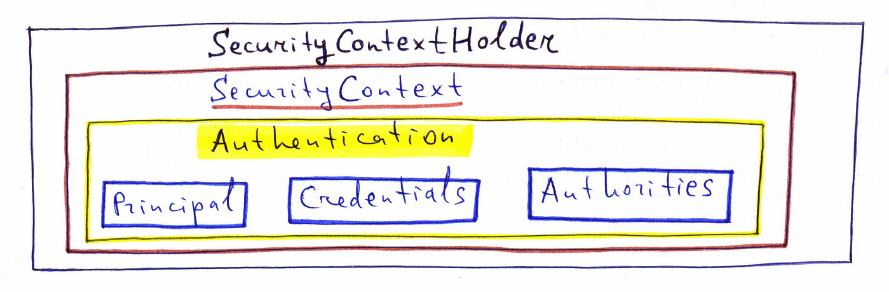 SecurityContextHolder
SecurityContext
Authentication
Principal Credentials Authorities